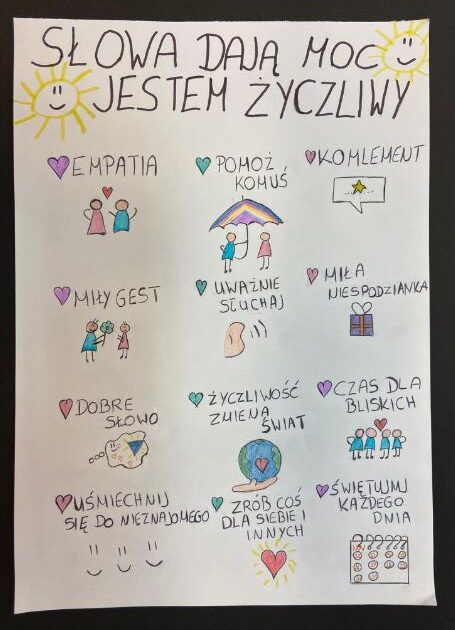 SŁOWA DAJĄ MOC
JESTEM ŻYCZLIWY
EMPATIA
POMOŻ
KOMUŚ
KOMLEMENT
MIŁY GEST
UWAŻNIE
SŁUCHAJ
MIŁA
NIESPODZIANKA
DOBRE
SŁOWO
ŻYCZLIWOŚĆ
ZMIENA
ŚWIAT
CZAS DLA
BLISKICH
UŚMIECHNIJ
SIĘ DO NIEZNAJOMEGO
ZRÓB COŚ
DLA SIEBIE I
INNYCH
ŚWIĘTUJMJ
KAŻDEGO
DNIA